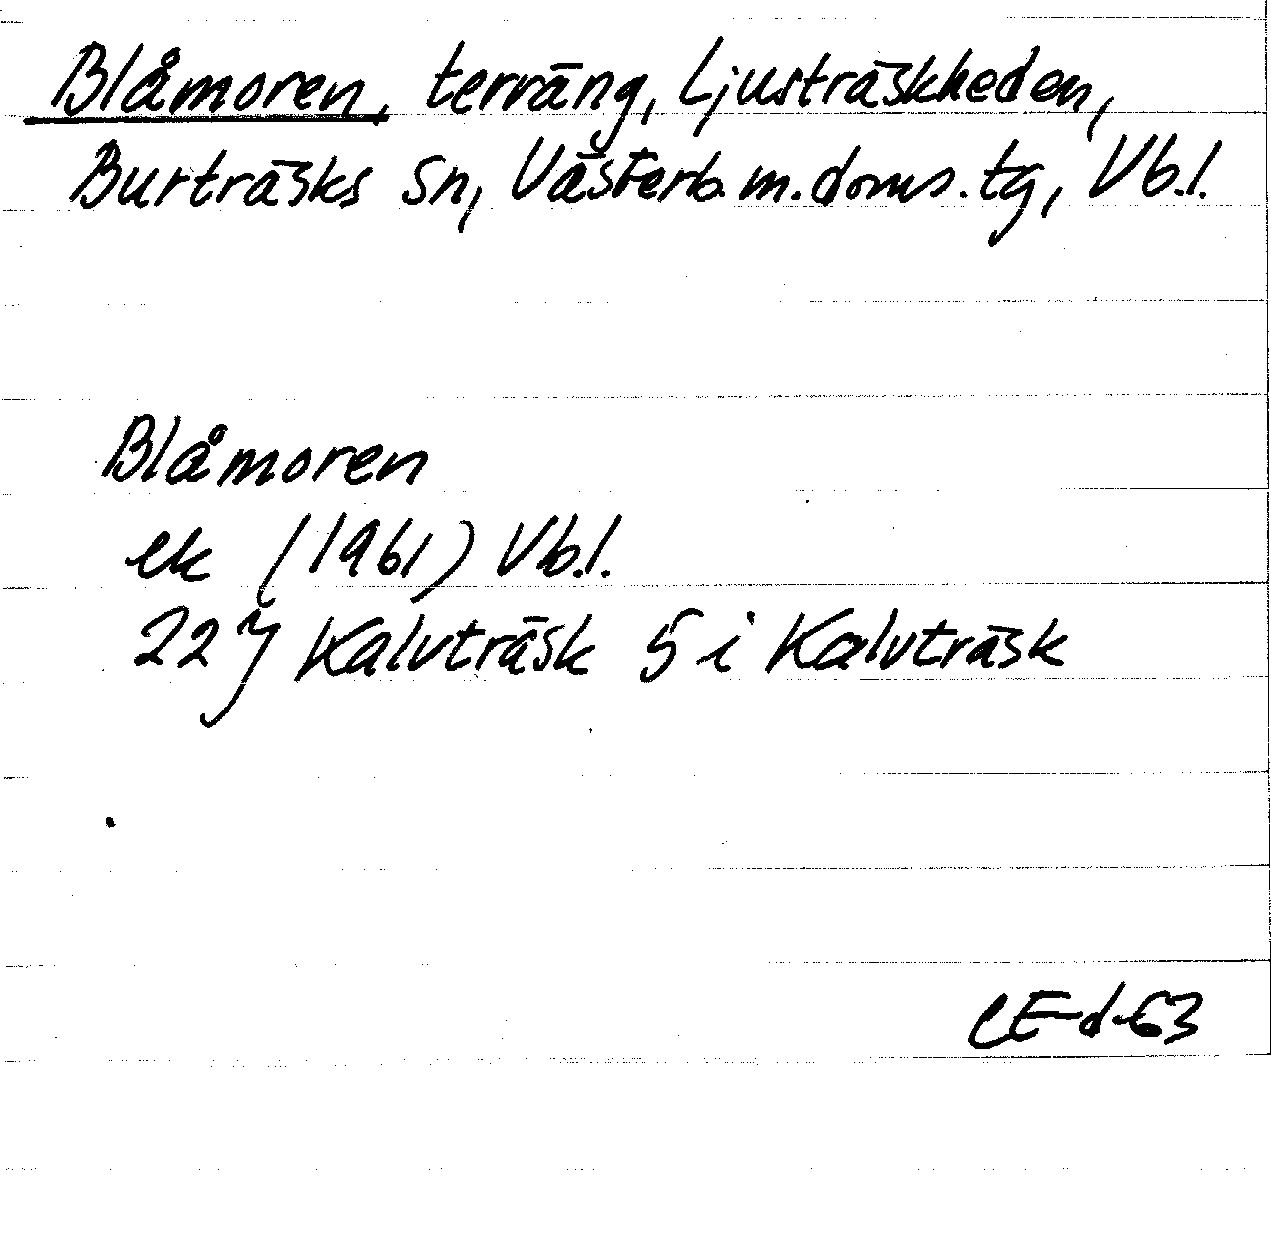 Blåmoren, terräng, Ljusträskheden,
Burträsks sn, Västerb. m. doms. tg, Vb.l.
Blåmoren
ek (1961) Vb.l.
22 J Kalvträsk 5 i Kalvträsk
CE-d-63